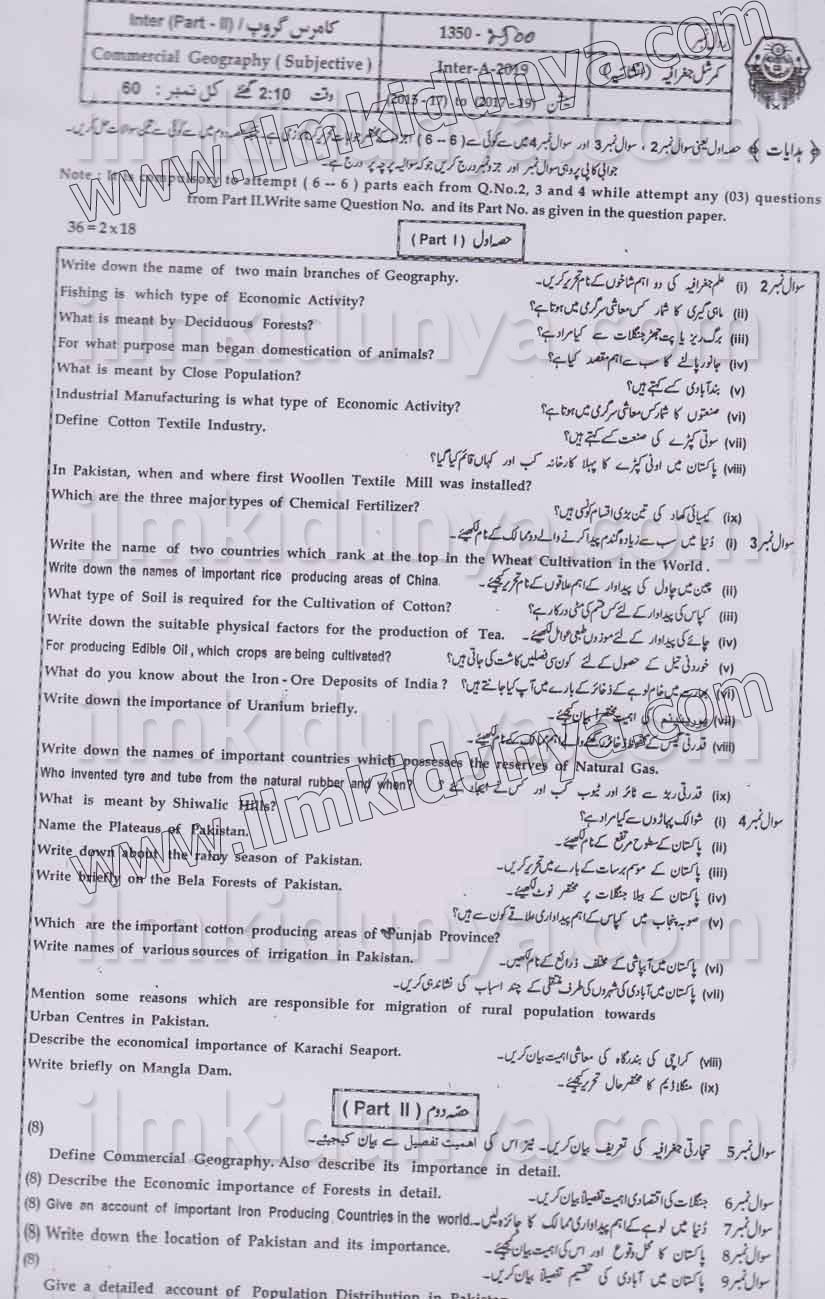 Inter (Part - II) / کامرس گروپ
1350 - 2500
رول نمبر
Commercial Geography ( Subjective )
Inter-A-2019
کمرشل جغرافیہ (انشائیہ)
وقت 2:10 گھنٹے کل نمبر : 60
سیشن (2015-17) to (2017-19)
﴿ ہدایات ﴾ حصہ اول یعنی سوال نمبر 2 ، سوال نمبر 3 اور سوال نمبر 4 میں سے کوئی سے ( 6 -- 6 ) اجزاء کے مختصر جوابات تحریر کرنا لازمی ہے۔ حصہ دوم میں سے کوئی سے تین سوالات حل کریں۔
جوابی کاپی پر وہی سوال نمبر اور جزو نمبر درج کریں جو کہ سوالیہ پرچہ پر درج ہے۔
Note : It is compulsory to attempt ( 6 -- 6 ) parts each from Q.No.2, 3 and 4 while attempt any (03) questions
from Part II.Write same Question No. and its Part No. as given in the question paper.
36 = 2 x 18
حصہ اول ( Part I )
سوال نمبر 2 (i) علم جغرافیہ کی دو اہم شاخوں کے نام تحریر کریں۔
Write down the name of two main branches of Geography.
(ii) ماہی گیری کا شمار کس معاشی سرگرمی میں ہوتا ہے؟
Fishing is which type of Economic Activity?
(iii) برگ ریز یا پت جھڑ جنگلات سے کیا مراد ہے؟
What is meant by Deciduous Forests?
(iv) جانور پالنے کا سب سے اہم مقصد کیا ہے؟
For what purpose man began domestication of animals?
(v) بند آبادی کسے کہتے ہیں؟
What is meant by Close Population?
(vi) صنعتوں کا شمار کس معاشی سرگرمی میں ہوتا ہے؟
Industrial Manufacturing is what type of Economic Activity?
(vii) سوتی کپڑے کی صنعت کسے کہتے ہیں؟
Define Cotton Textile Industry.
(viii) پاکستان میں اونی کپڑے کا پہلا کارخانہ کب اور کہاں قائم کیا گیا؟
In Pakistan, when and where first Woollen Textile Mill was installed?
(ix) کیمیائی کھاد کی تین بڑی اقسام کونسی ہیں؟
Which are the three major types of Chemical Fertilizer?
سوال نمبر 3 (i) دُنیا میں سب سے زیادہ گندم پیدا کرنے والے دو ممالک کے نام لکھیئے۔
Write the name of two countries which rank at the top in the Wheat Cultivation in the World .
(ii) چین میں چاول کی پیداوار کے اہم علاقوں کے نام تحریر کیجئے۔
Write down the names of important rice producing areas of China.
(iii) کپاس کی پیداوار کے لئے کس قسم کی مٹی درکار ہے؟
What type of Soil is required for the Cultivation of Cotton?
(iv) چائے کی پیداوار کے لئے موزوں طبعی عوامل لکھیئے۔
Write down the suitable physical factors for the production of Tea.
(v) خوردنی تیل کے حصول کے لئے کون سی فصلیں کاشت کی جاتی ہیں؟
For producing Edible Oil , which crops are being cultivated?
(vi) بھارت میں خام لوہے کے ذخائر کے بارے میں آپ کیا جانتے ہیں؟
What do you know about the Iron - Ore Deposits of India ?
(vii) یورینیئم کی اہمیت مختصراً بیان کیجئے۔
Write down the importance of Uranium briefly.
(viii) قدرتی گیس کے محفوظ ذخائر رکھنے والے اہم ممالک کے نام لکھیئے۔
Write down the names of important countries which possesses the reserves of Natural Gas.
(ix) قدرتی ربڑ سے ٹائر اور ٹیوب کب اور کس نے ایجاد کئے ؟
Who invented tyre and tube from the natural rubber and when?
سوال نمبر 4 (i) شوالک پہاڑوں سے کیا مراد ہے؟
What is meant by Shiwalic Hills?
(ii) پاکستان کے سطوح مرتفع کے نام لکھیئے۔
Name the Plateaus of Pakistan.
(iii) پاکستان کے موسم برسات کے بارے میں تحریر کریں۔
Write down about the rainy season of Pakistan.
(iv) پاکستان کے بیلا جنگلات پر مختصر نوٹ لکھیئے۔
Write briefly on the Bela Forests of Pakistan.
(v) صوبہ پنجاب میں کپاس کے اہم پیداواری علاقے کون سے ہیں؟
Which are the important cotton producing areas of Punjab Province?
(vi) پاکستان میں آبپاشی کے مختلف ذرائع کے نام لکھیں۔
Write names of various sources of irrigation in Pakistan.
(vii) پاکستان میں آبادی کی شہروں کی طرف منتقلی کے چند اسباب کی نشاندہی کریں۔
Mention some reasons which are responsible for migration of rural population towards
Urban Centres in Pakistan.
(viii) کراچی کی بندرگاہ کی معاشی اہمیت بیان کریں۔
Describe the economical importance of Karachi Seaport.
(ix) منگلا ڈیم کا مختصر حال تحریر کیجئے۔
Write briefly on Mangla Dam.
حصہ دوم ( Part II )
سوال نمبر 5 تجارتی جغرافیہ کی تعریف بیان کریں۔ نیز اس کی اہمیت تفصیل سے بیان کیجیئے۔ (8)
Define Commercial Geography. Also describe its importance in detail.
سوال نمبر 6 جنگلات کی اقتصادی اہمیت تفصیلاً بیان کریں۔
(8) Describe the Economic importance of Forests in detail.
سوال نمبر 7 دُنیا میں لوہے کے اہم پیداواری ممالک کا جائزہ لیں۔
(8) Give an account of important Iron Producing Countries in the world.
سوال نمبر 8 پاکستان کا محل وقوع اور اس کی اہمیت بیان کیجئے۔
(8) Write down the location of Pakistan and its importance.
سوال نمبر 9 پاکستان میں آبادی کی تقسیم تفصیلاً بیان کریں۔ (8)
Give a detailed account of Population Distribution in
www.ilmkidunya.com